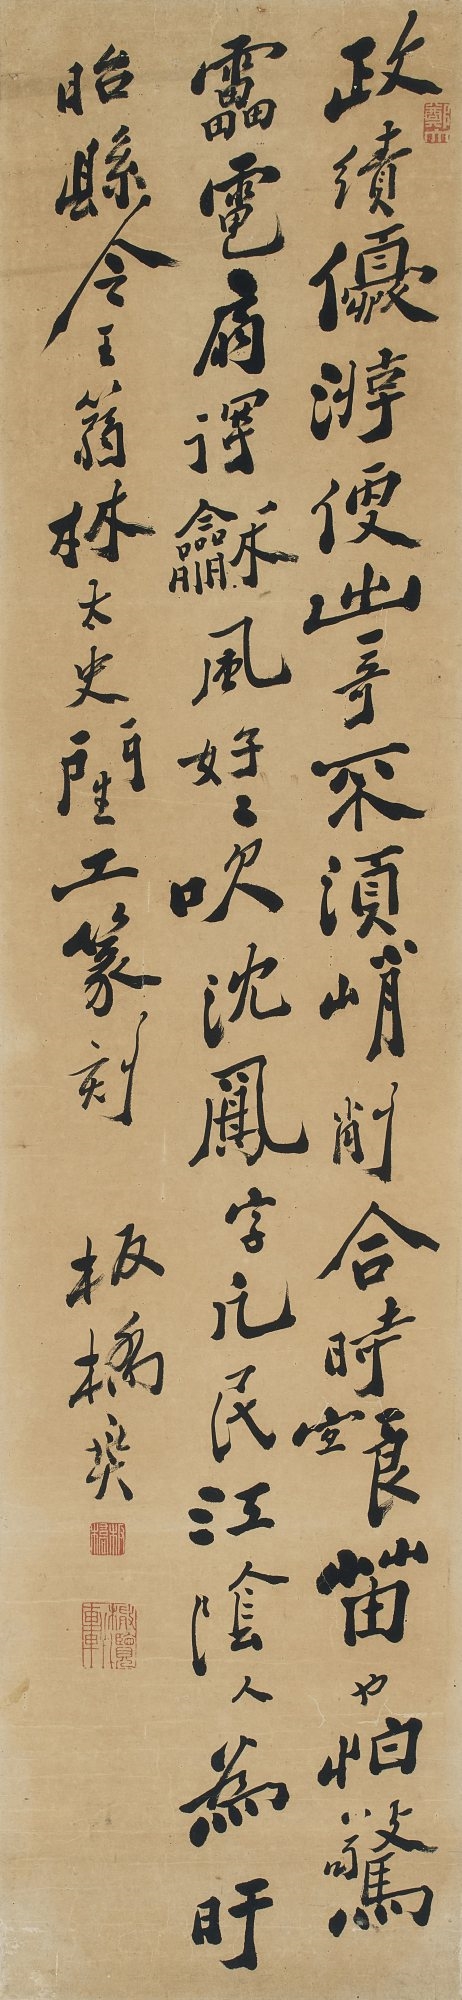 政績優游便出奇不須峭削合時宜良苗也怕驚
靁電扇得龢風好〻吹沈鳳字凡民江陰人為盱
眙縣令王篛林太史門生工篆刻
板橋燮
橄欖軒